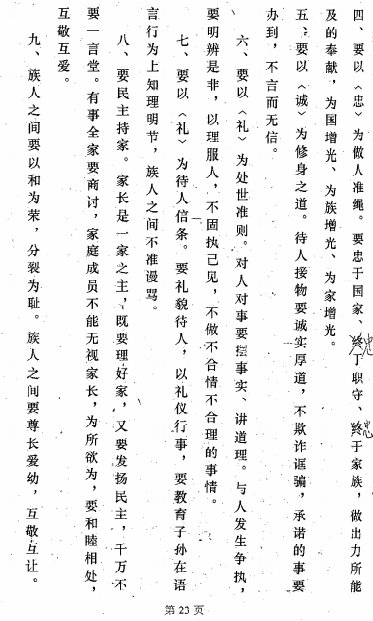 四、要以〈忠〉为做人准绳。要忠于国家、终丁职守、终于家族，做出力所能
忠
忠
及的奉献，为国增光、为族增光、为家增光。
五、要以〈诚〉为修身之道。待人接物要诚实厚道，不欺诈诓骗，承诺的事要
办到，不言而无信。
六、要以〈礼〉为处世准则。对人对事要摆事实、讲道理。与人发生争执，
要明辨是非，以理服人，不固执己见，不做不合情不合理的事情。
七、要以〈礼〉为待人信条。要礼貌待人，以礼仪行事，要教育子孙在语
言行为上知理明节，族人之间不准谩骂。
八、要民主持家。家长是一家之主，既要理好家，又要发扬民主，千万不
要一言堂。有事全家要商讨，家庭成员不能无视家长，为所欲为，要和睦相处，
互敬互爱。
九、族人之间要以和为荣，分裂为耻。族人之间要尊长爱幼，互敬互让。
第23页